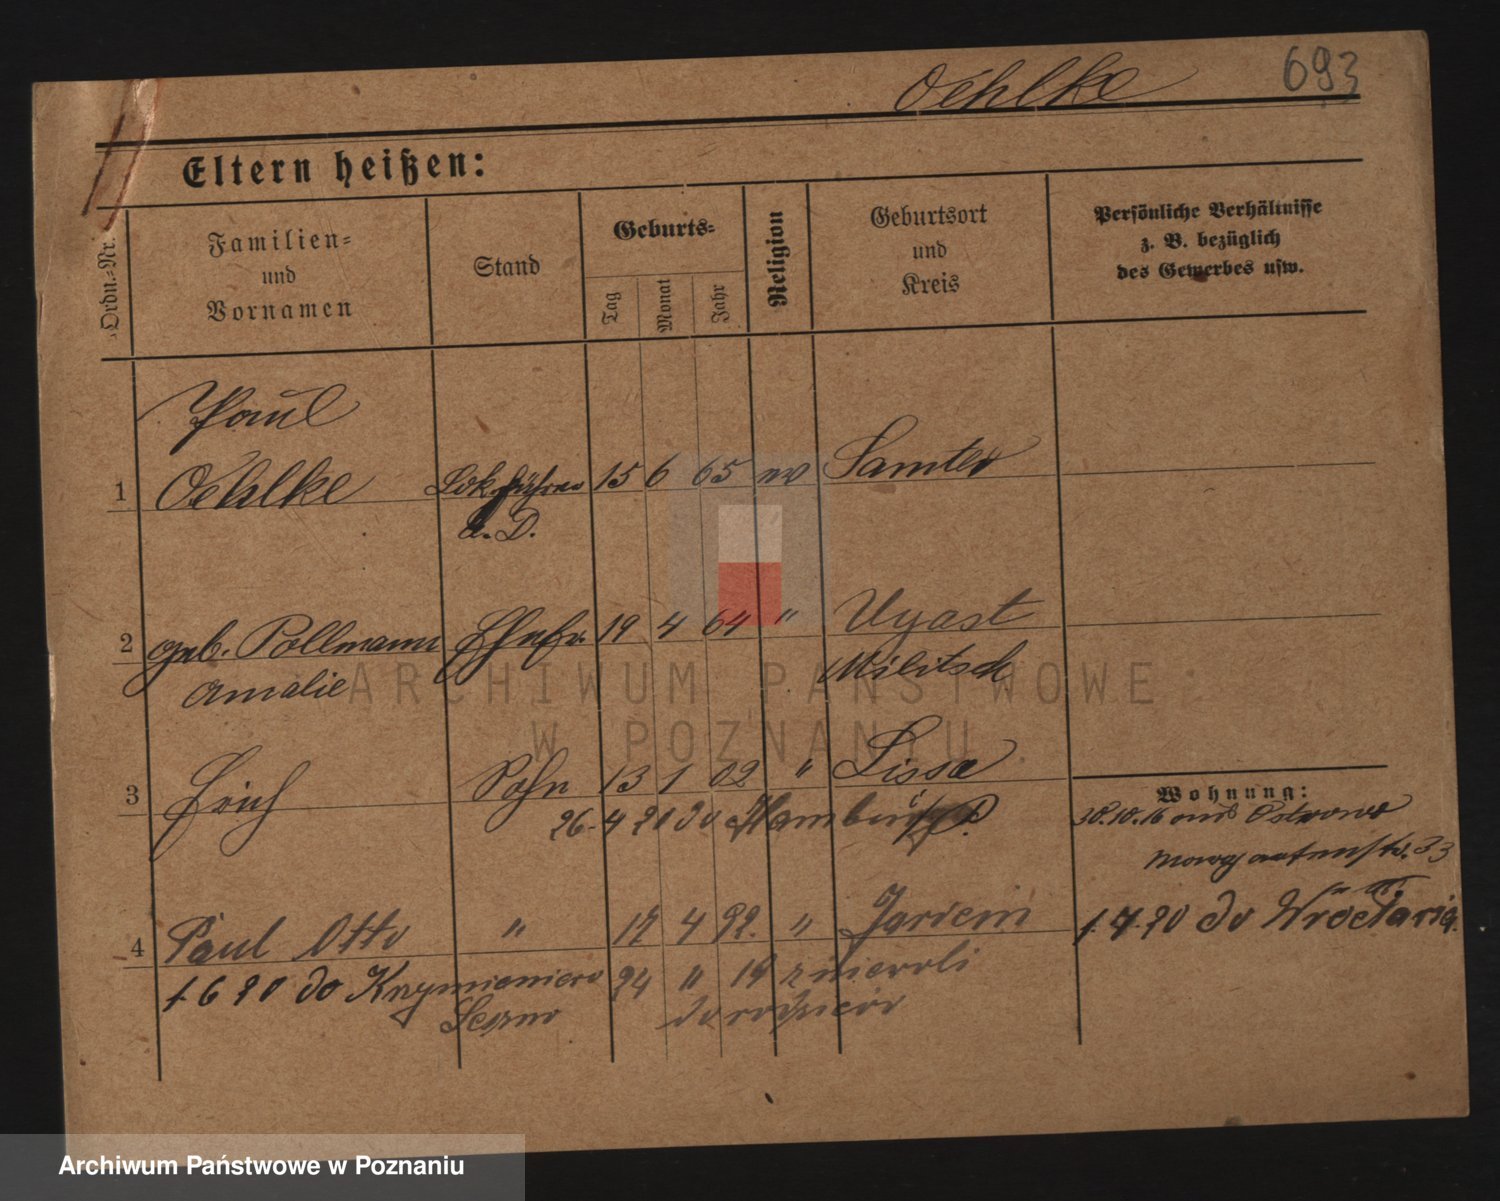 Oehlke 693
Eltern heißen:
Ordn.-Nr.
Familien-
und
Vornamen
Stand
Geburts-
Tag
Monat
Jahr
Religion
Geburtsort
und
Kreis
Persönliche Verhältnisse
z. B. bezüglich
des Gewerbes usw.
Paul
1 Oehlke Lok.führer 15 6 65 ev Samter
a. D.
2 geb. Pollmann Ehefr. 19 4 64 " Uyast
Amalie Militsch
3 Erich Sohn 13 1 02 " Lissa
26.4 20 do Hamburg
Wohnung:
30.10.16 aus Ostrowo
33
4 Paul Otto " 12 4 92. " 
1.7.20 do Wrocławia.
1.6 20 do
24 " 19 z niewoli
do rodziców
ARCHIWUM PAŃSTWOWE
W POZNANIU
Archiwum Państwowe w Poznaniu